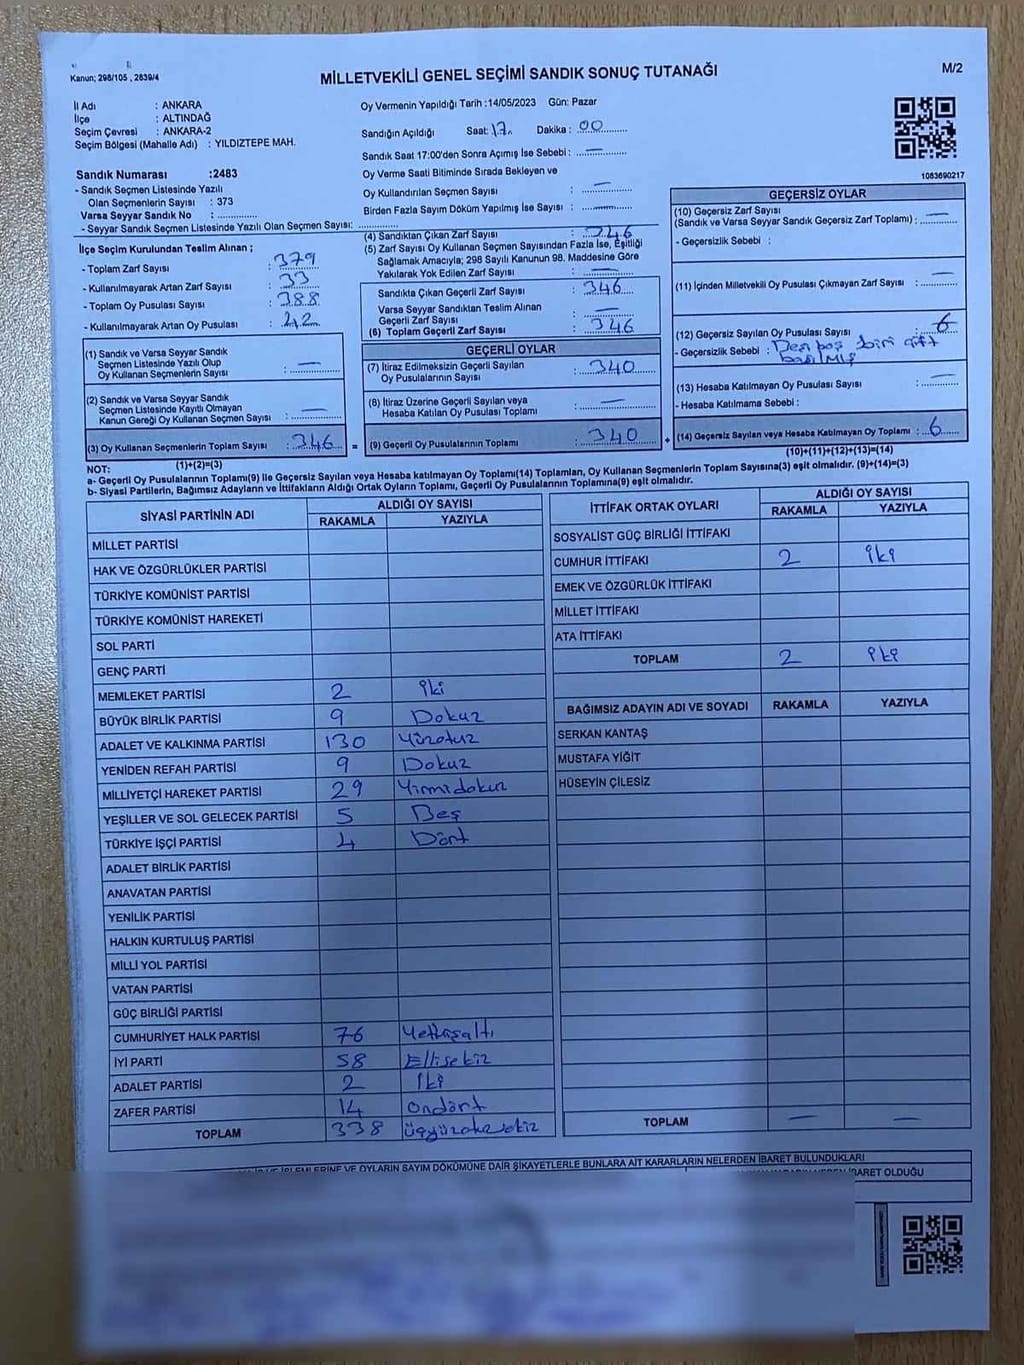 Kanun; 298/105 , 2839/4
MİLLETVEKİLİ GENEL SEÇİMİ SANDIK SONUÇ TUTANAĞI
M/2
İl Adı : ANKARA
İlçe : ALTINDAĞ
Seçim Çevresi : ANKARA-2
Seçim Bölgesi (Mahalle Adı) : YILDIZTEPE MAH.
Oy Vermenin Yapıldığı Tarih :14/05/2023 Gün: Pazar
Sandığın Açıldığı Saat: 17 Dakika : 00
Sandık Saat 17:00'den Sonra Açımış İse Sebebi : —
Oy Verme Saati Bitiminde Sırada Bekleyen ve
Oy Kullandırılan Seçmen Sayısı : —
Birden Fazla Sayım Döküm Yapılmış İse Sayısı : —
1083690217
Sandık Numarası :2483
- Sandık Seçmen Listesinde Yazılı
Olan Seçmenlerin Sayısı : 373
Varsa Seyyar Sandık No :
- Seyyar Sandık Seçmen Listesinde Yazılı Olan Seçmen Sayısı:
İlçe Seçim Kurulundan Teslim Alınan ;
- Toplam Zarf Sayısı : 379
- Kullanılmayarak Artan Zarf Sayısı : 33
- Toplam Oy Pusulası Sayısı : 388
- Kullanılmayarak Artan Oy Pusulası : 42
(1) Sandık ve Varsa Seyyar Sandık
Seçmen Listesinde Yazılı Olup
Oy Kullanan Seçmenlerin Sayısı : —
(2) Sandık ve Varsa Seyyar Sandık
Seçmen Listesinde Kayıtlı Olmayan
Kanun Gereği Oy Kullanan Seçmen Sayısı : —
(3) Oy Kullanan Seçmenlerin Toplam Sayısı : 346 =
(1)+(2)=(3)
(4) Sandıktan Çıkan Zarf Sayısı : 346
(5) Zarf Sayısı Oy Kullanan Seçmen Sayısından Fazla İse, Eşitliği
Sağlamak Amacıyla; 298 Sayılı Kanunun 98. Maddesine Göre
Yakılarak Yok Edilen Zarf Sayısı : —
Sandıkta Çıkan Geçerli Zarf Sayısı : 346
Varsa Seyyar Sandıktan Teslim Alınan
Geçerli Zarf Sayısı : —
(6) Toplam Geçerli Zarf Sayısı : 346
GEÇERLİ OYLAR
(7) İtiraz Edilmeksizin Geçerli Sayılan
Oy Pusulalarının Sayısı : 340
(8) İtiraz Üzerine Geçerli Sayılan veya
Hesaba Katılan Oy Pusulası Toplamı : —
(9) Geçerli Oy Pusulalarının Toplamı : 340 +
GEÇERSİZ OYLAR
(10) Geçersiz Zarf Sayısı
(Sandık ve Varsa Seyyar Sandık Geçersiz Zarf Toplamı) : —
- Geçersizlik Sebebi :
(11) İçinden Milletvekili Oy Pusulası Çıkmayan Zarf Sayısı : —
(12) Geçersiz Sayılan Oy Pusulası Sayısı : 6
- Geçersizlik Sebebi : biri çift
(13) Hesaba Katılmayan Oy Pusulası Sayısı : —
- Hesaba Katılmama Sebebi :
(14) Geçersiz Sayılan veya Hesaba Katılmayan Oy Toplamı : 6
(10)+(11)+(12)+(13)=(14)
NOT:
a- Geçerli Oy Pusulalarının Toplamı(9) ile Geçersiz Sayılan veya Hesaba katılmayan Oy Toplamı(14) Toplamları, Oy Kullanan Seçmenlerin Toplam Sayısına(3) eşit olmalıdır. (9)+(14)=(3)
b- Siyasi Partilerin, Bağımsız Adayların ve İttifakların Aldığı Ortak Oyların Toplamı, Geçerli Oy Pusulalarının Toplamına(9) eşit olmalıdır.
SİYASİ PARTİNİN ADI ALDIĞI OY SAYISI
RAKAMLA YAZIYLA
MİLLET PARTİSİ
HAK VE ÖZGÜRLÜKLER PARTİSİ
TÜRKİYE KOMÜNİST PARTİSİ
TÜRKİYE KOMÜNİST HAREKETİ
SOL PARTİ
GENÇ PARTİ
MEMLEKET PARTİSİ 2 iki
BÜYÜK BİRLİK PARTİSİ 9 Dokuz
ADALET VE KALKINMA PARTİSİ 130 Yüzotuz
YENİDEN REFAH PARTİSİ 9 Dokuz
MİLLİYETÇİ HAREKET PARTİSİ 29 Yirmidokuz
YEŞİLLER VE SOL GELECEK PARTİSİ 5 Beş
TÜRKİYE İŞÇİ PARTİSİ 4 Dört
ADALET BİRLİK PARTİSİ
ANAVATAN PARTİSİ
YENİLİK PARTİSİ
HALKIN KURTULUŞ PARTİSİ
MİLLİ YOL PARTİSİ
VATAN PARTİSİ
GÜÇ BİRLİĞİ PARTİSİ
CUMHURİYET HALK PARTİSİ 76 Yetmişaltı
İYİ PARTİ 58 Ellisekiz
ADALET PARTİSİ 2 İki
ZAFER PARTİSİ 14 Ondört
TOPLAM 338 üçyüzotuzsekiz
İTTİFAK ORTAK OYLARI ALDIĞI OY SAYISI
RAKAMLA YAZIYLA
SOSYALİST GÜÇ BİRLİĞİ İTTİFAKI
CUMHUR İTTİFAKI 2 iki
EMEK VE ÖZGÜRLÜK İTTİFAKI
MİLLET İTTİFAKI
ATA İTTİFAKI
TOPLAM 2 iki
BAĞIMSIZ ADAYIN ADI VE SOYADI RAKAMLA YAZIYLA
SERKAN KANTAŞ
MUSTAFA YİĞİT
HÜSEYİN ÇİLESİZ
TOPLAM — —
İŞLEMLERİNE VE OYLARIN SAYIM DÖKÜMÜNE DAİR ŞİKAYETLERLE BUNLARA AİT KARARLARIN NELERDEN İBARET BULUNDUKLARI
İBARET OLDUĞU